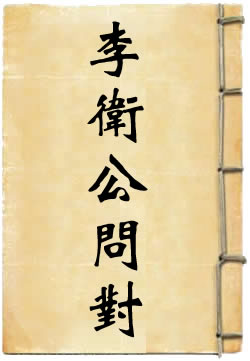 李衛公問對